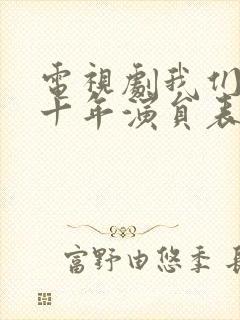 電視劇我们
十年演員表
富野由悠季